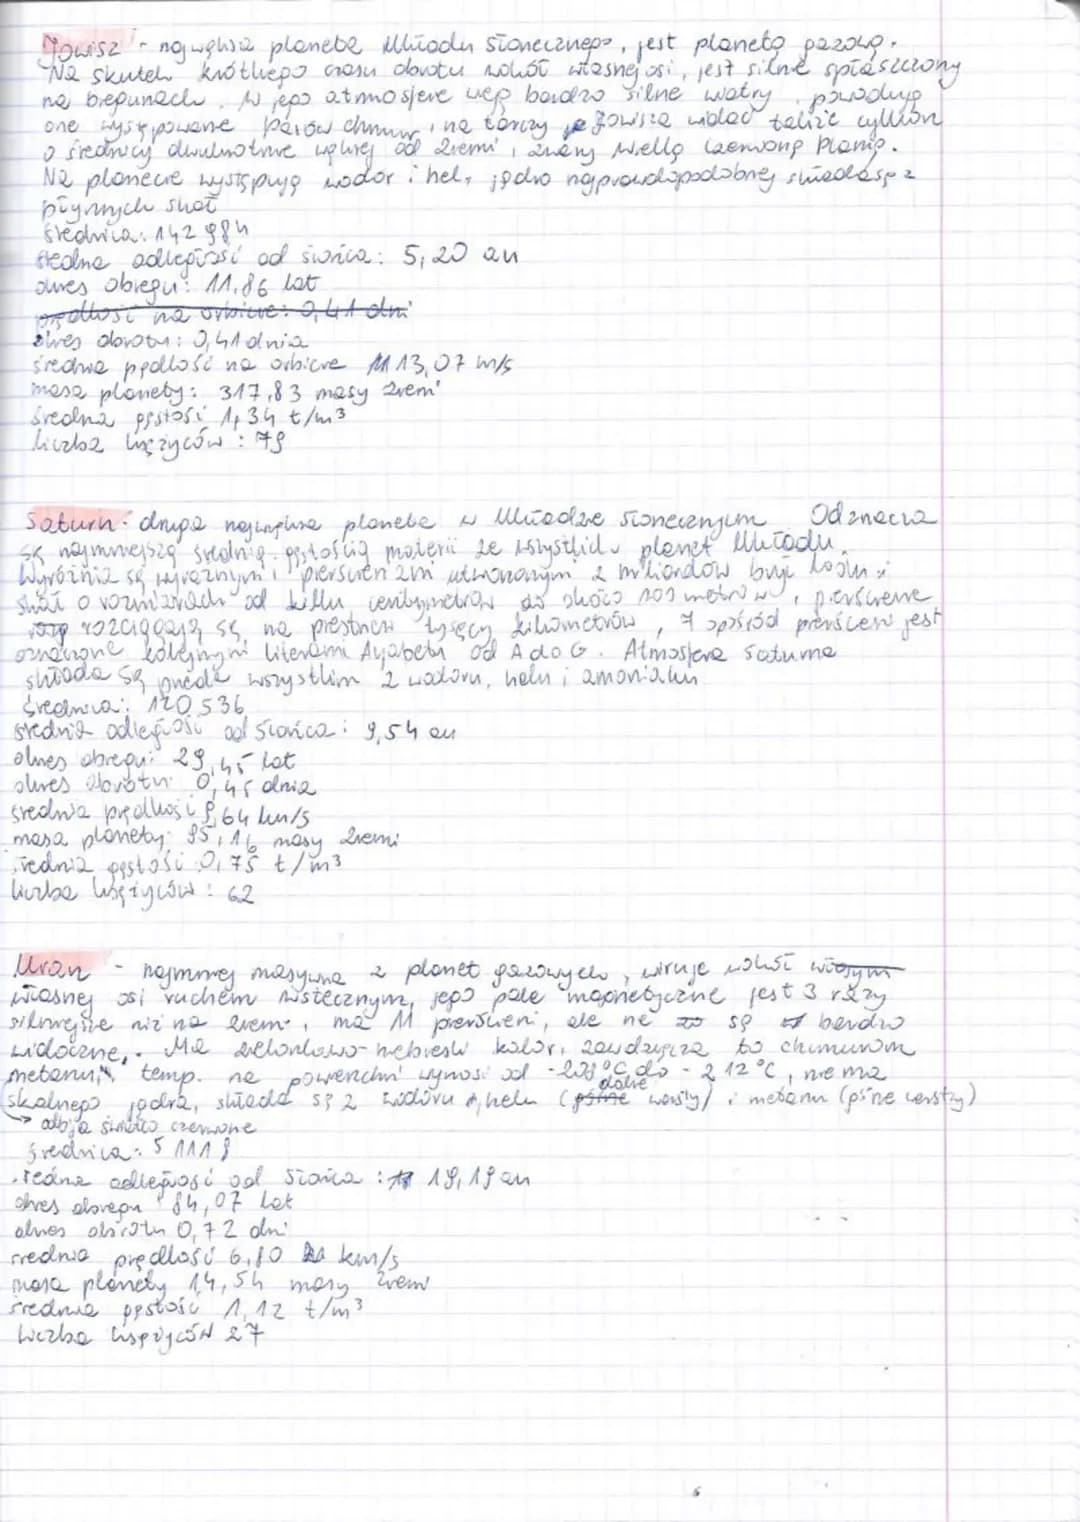 Jowisz - największa planeta Układu Słonecznego, jest planetą gazową.
Na skutek krótkiego czasu obrotu wokół własnej osi, jest silnie spłaszczony
na biegunach. W jego atmosferze wieją bardzo silne wiatry, powodują
one występowanie pasów chmur, na tarczy Jowisza widać także cyklon
o średnicy dwukrotnie większej od Ziemi, zwany Wielką Czerwoną Plamą.
Na planecie występują wodór i hel, jądro najprawdopodobniej składa się z
płynnych skał
średnica: 142 984
średnia odległość od słońca: 5,20 au
okres obiegu: 11,86 lat
prędkość na orbicie: 0,41 dni
okres obrotu: 0,41 dnia
średnia prędkość na orbicie 13,07 m/s
masa planety: 317,83 masy Ziemi
średnia gęstość 1,34 t/m³
liczba księżyców: 79
Saturn - druga największa planeta w Układzie Słonecznym. Odznacza
się najmniejszą średnią gęstością materii ze wszystkich planet Układu.
Wyróżnia się wyraźnymi pierścieniami utworzonymi z miliardów brył lodu i
skał o rozmiarach od kilku centymetrów do około 100 metrów, pierścienie
rozciągają się na przestrzeń tysięcy kilometrów, 7 spośród pierścieni jest
oznaczone kolejnymi literami Alfabetu od A do G. Atmosfera Saturna
składa się przede wszystkim z wodoru, helu i amoniaku
średnica: 120 536
średnia odległość od Słońca: 9,54 au
okres obiegu: 29,45 lat
okres obrotu: 0,45 dnia
średnia prędkość 9,64 km/s
masa planety: 95,16 masy Ziemi
średnia gęstość: 0,75 t/m³
liczba księżyców: 62
Uran - najmniej masywna z planet gazowych, wiruje wokół
własnej osi ruchem wstecznym, jego pole magnetyczne jest 3 razy
silniejsze niż na Ziemi, ma 11 pierścieni, ale nie są bardzo
widoczne. Ma zielonkawo-niebieski kolor, zawdzięcza to chmurom
metanu, temp. na powierzchni wynosi od -208°C do -212°C, nie ma
skalnego jądra, składa się z wodoru, helu (dolne warstwy) i metanu (górne warstwy)
→ odbija światło czerwone
średnica: 5 1118
średnia odległość od Słońca: 19,19 au
okres obiegu 84,07 lat
okres obrotu 0,72 dni
średnia prędkość 6,80 km/s
masa planety 14,54 masy Ziemi
średnia gęstość 1,12 t/m³
liczba księżyców 27